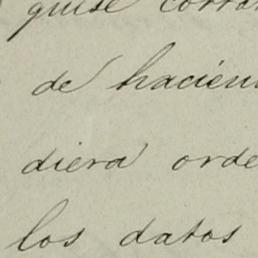 quise
de hacien
diera orde
los datos